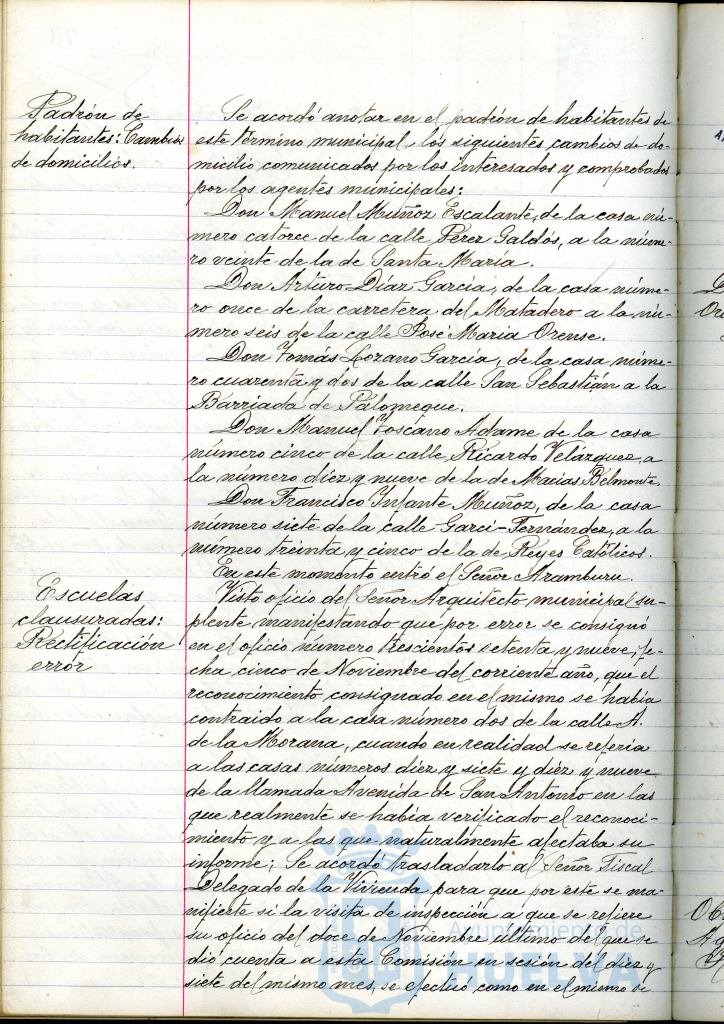 Padrón de
habitantes: Cambios
de domicilios.
Se acordó anotar en el padrón de habitantes de
este término municipal, los siguientes cambios de do-
micilio comunicados por los interesados y comprobados
por los agentes municipales:
Don Manuel Muñoz Escalante, de la casa nú-
mero catorce de la calle Pérez Galdós, a la núme-
ro veinte de la de Santa María.
Don Arturo Díaz García, de la casa núme-
ro once de la carretera del Matadero a la nú-
mero seis de la calle José María Orense.
Don Tomás Lozano García, de la casa núme-
ro cuarenta y dos de la calle San Sebastián a la
Barriada de Palomeque.
Don Manuel Toscano Adame de la casa
número cinco de la calle Ricardo Velázquez, a
la número diez y nueve de la de Macías Belmonte.
Don Francisco Infante Muñoz, de la casa
número siete de la calle Garci-Fernández, a la
número treinta y cinco de la de Reyes Católicos.
En este momento entró el Señor Aramburu.
Escuelas
clausuradas:
Rectificación
error
Visto oficio del Señor Arquitecto municipal su-
plente manifestando que por error se consignó
en el oficio número trescientos setenta y nueve, fe-
cha cinco de Noviembre del corriente año, que el
reconocimiento consignado en el mismo se había
contraido a la casa número dos de la calle A.
de la Morana, cuando en realidad se refería
a las casas números diez y siete y diez y nueve
de la llamada Avenida de San Antonio en las
que realmente se había verificado el reconoci-
miento y a las que naturalmente afectaba su
informe; Se acordó trasladarlo al Señor Fiscal
Delegado de la Vivienda para que por éste se ma-
nifieste si la visita de inspección a que se refiere
su oficio del doce de Noviembre último del que se
dió cuenta a esta Comisión en sesión del diez y
siete del mismo mes, se efectuó como en el mismo se
Ayuntamiento de
HUELVA